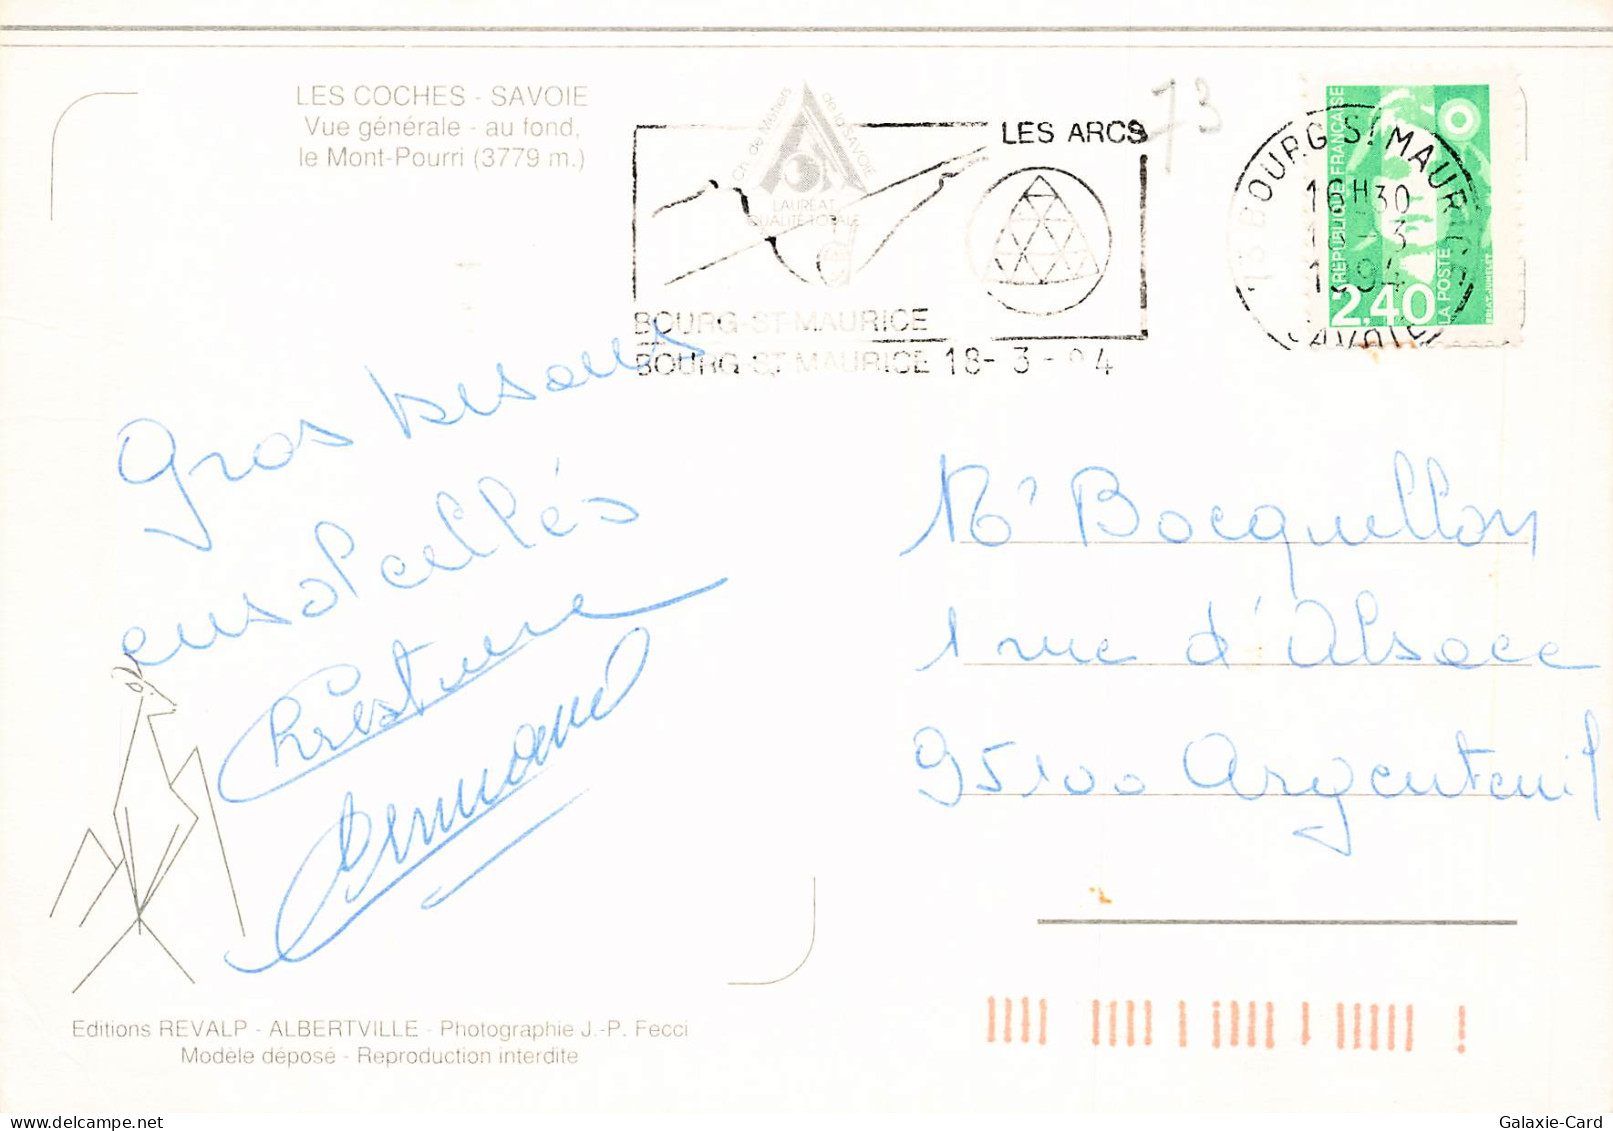 LES COCHES - SAVOIE
Vue générale - au fond,
le Mont-Pourri (3779 m.)
Ch. de Métiers de la SAVOIE
LAURÉAT
QUALITÉ TOTALE
LES ARCS
BOURG-ST-MAURICE
BOURG-ST MAURICE 18- 3 - 94
73
73 BOURG ST MAURICE
16H30
18-3
1994
SAVOIE
RÉPUBLIQUE FRANÇAISE
2,40
LA POSTE
Gros bisous
ensoleillés
Christine
Armand
Mr Bocquillon
1 rue d'Alsace
95100 Argenteuil
Editions REVALP - ALBERTVILLE - Photographie J.-P. Fecci
Modèle déposé - Reproduction interdite
Galaxie-Card